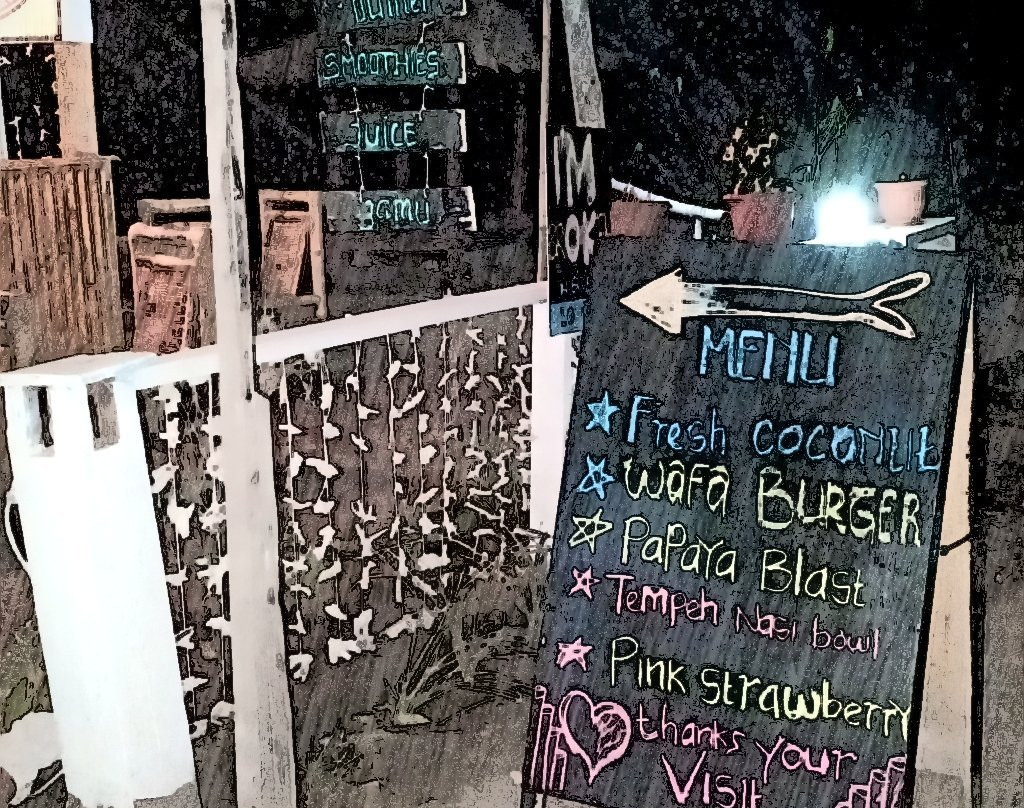 SMOOTHIES
JUICE
JAMU
I'M
MENU
Fresh COCONUt
WAFA BURGER
PaPaYa Blast
Tempeh Nasi bowl
Pink strawberry
thanks your
Visit